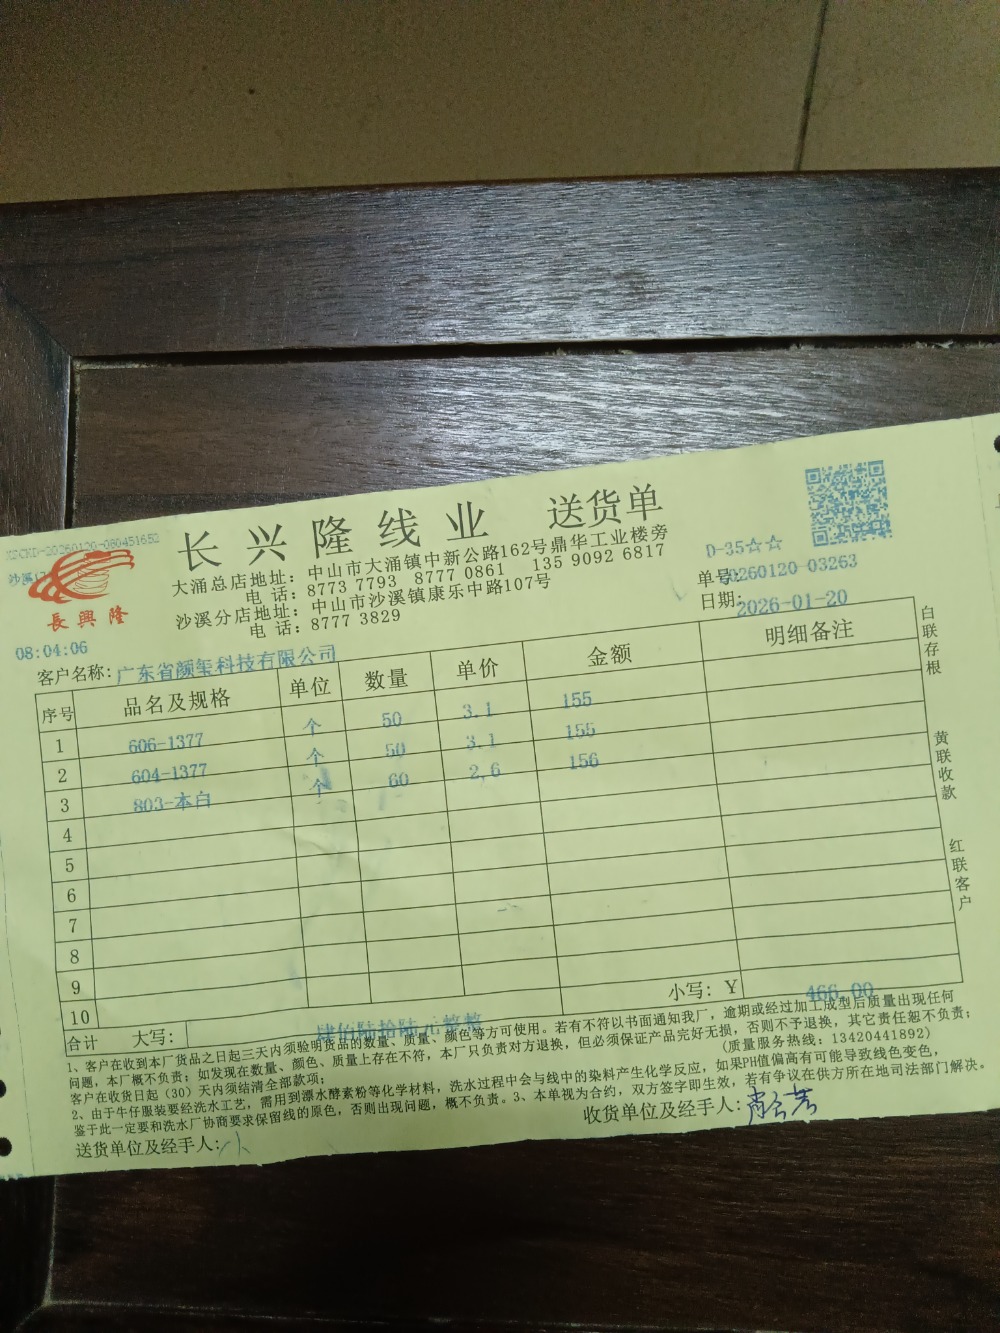 XSCKD-20260120-080451652
沙溪1
長興隆
08:04:06
长兴隆线业 送货单
大涌总店地址：中山市大涌镇中新公路162号鼎华工业楼旁
电话：8773 7793 8777 0861 135 9092 6817
沙溪分店地址：中山市沙溪镇康乐中路107号
电话：8777 3829
D-35☆☆
单号:20260120-03263
日期:2026-01-20
客户名称:广东省颜玺科技有限公司
序号 品名及规格 单位 数量 单价 金额 明细备注
1 606-1377 个 50 3.1 155
2 604-1377 个 50 3.1 155
3 803-本白 个 60 2.6 156
4
5
6
7
8
9
10
合计 大写：肆佰陆拾陆元整整 小写：¥ 466.00
1、客户在收到本厂货品之日起三天内须验明货品的数量、质量、颜色等方可使用。若有不符以书面通知我厂，逾期或经过加工成型后质量出现任何
问题，本厂概不负责；如发现在数量、颜色、质量上存在不符，本厂只负责对方退换，但必须保证产品完好无损，否则不予退换，其它责任恕不负责；
客户在收货日起（30）天内须结清全部款项； (质量服务热线：13420441892)
2、由于牛仔服装要经洗水工艺，需用到漂水酵素粉等化学材料，洗水过程中会与线中的染料产生化学反应，如果PH值偏高有可能导致线色变色，
鉴于此一定要和洗水厂协商要求保留线的原色，否则出现问题，概不负责。3、本单视为合约，双方签字即生效，若有争议在供方所在地司法部门解决。
送货单位及经手人：
收货单位及经手人：
白联存根
黄联收款
红联客户